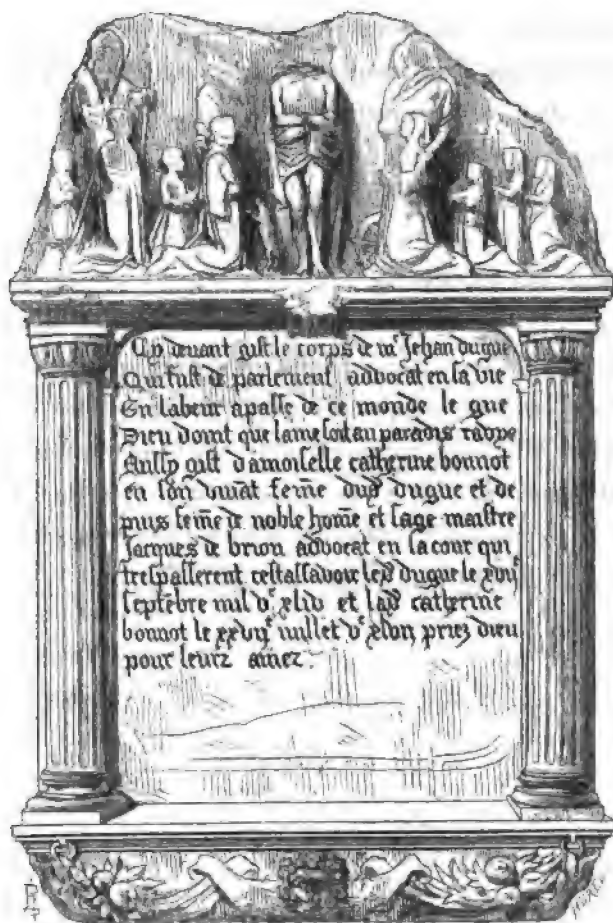 Cy devant gist le corps de mᵉ Jehan dugue
Qui fust de parlement advocat en sa vie
En labeur a passe de ce monde le gue
Dieu doint que lame soit en paradis ravye
Aussy gist damoiselle catherine bonnot
en son vivāt feme dud dugue et de
puis feme de noble home et sage maistre
Jacques de brion advocat en la cour qui
trespasserent cestassavoir led dugue le xviiᵉ
septebre mil vᶜ xliiii et lad catherine
bonnot le xxviiᵉ iuillet vᶜ priez dieu
pour leurz amez.